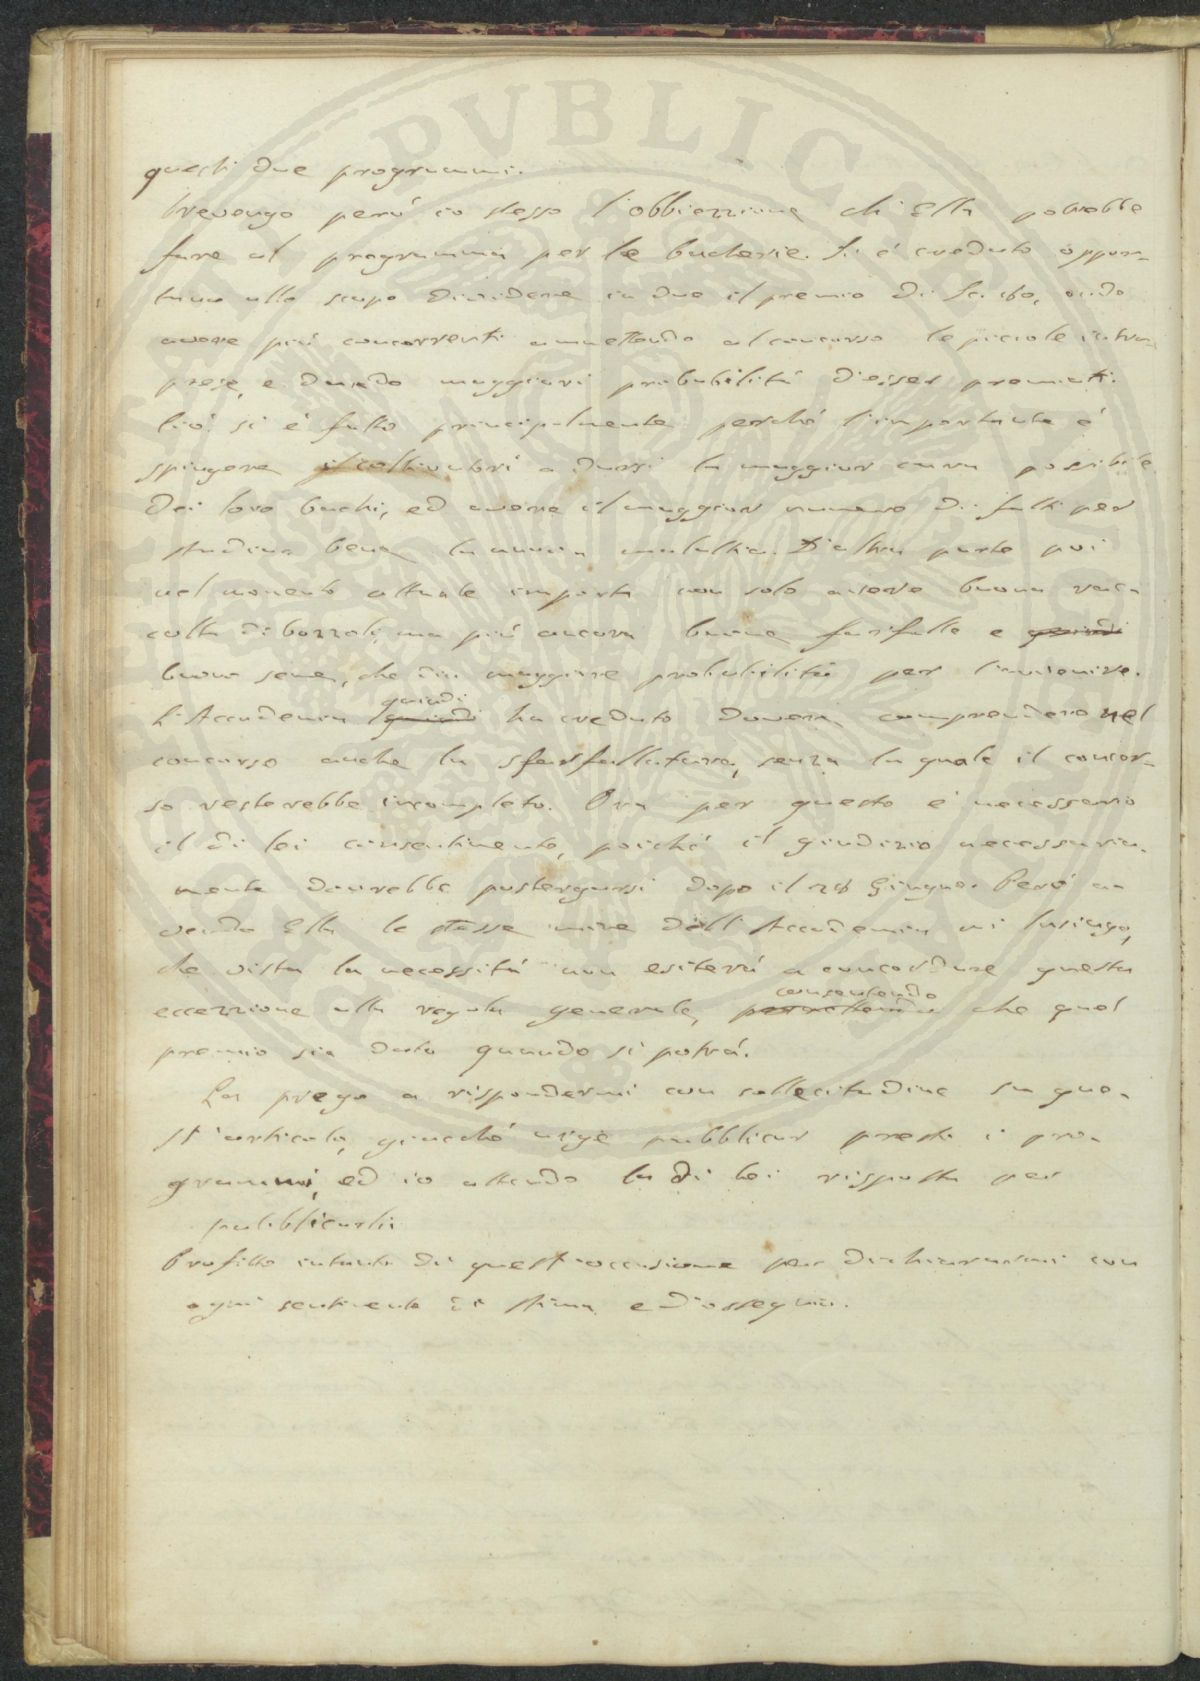 PVBLICAE
questi due programmi.
Prevengo però io stesso l'obbiezzione ch'Ella potrebbe
fare al programma per le bacherie. Si è creduto oppor-
tuno allo scopo dividere in due il premio di Sc. 160, onde
avere più concorrenti ammettendo al concorso le picciole intra-
prese, e dando maggiori probabilità d'esser premiati.
Ciò si è fatto principalmente perché l'importante è
spingere i coltivatori a darsi la maggior cura possibile
dei loro bachi, ed avere il maggior numero di fatti per
studiar bene la nuova malattia. D'altra parte poi
nel momento attuale importa non solo avere buona rac-
colta di bozzoli, ma più ancora buone farfalle e quindi
buono seme, che dia maggiore probabilità per l'avvenire.
quindi
L'Accademia quindi ha creduto dovere comprendere nel
concorso anche la sfarfallatura, senza la quale il concor-
so resterebbe incompleto. Ora per questo è necessario
il di lei consentimento, poiché il giudizio necessaria-
mente dovrebbe postergarsi dopo il 28 Giugno. Però a-
vendo Ella le stesse mire dell'Accademia mi lusingo,
che vista la necessità non esiterà a concordare questa
consentendo
eccezzione alla regola generale, che quel
premio sia dato quando si potrà.
La prego a rispondermi con sollecitudine su que-
st'articolo, giacché urge pubblicar presto i pro-
grammi, ed io attendo la di lei risposta per
pubblicarli
Profitto intanto di quest'occasione per dichiararmi con
ogni sentimento di stima e d'ossequio.